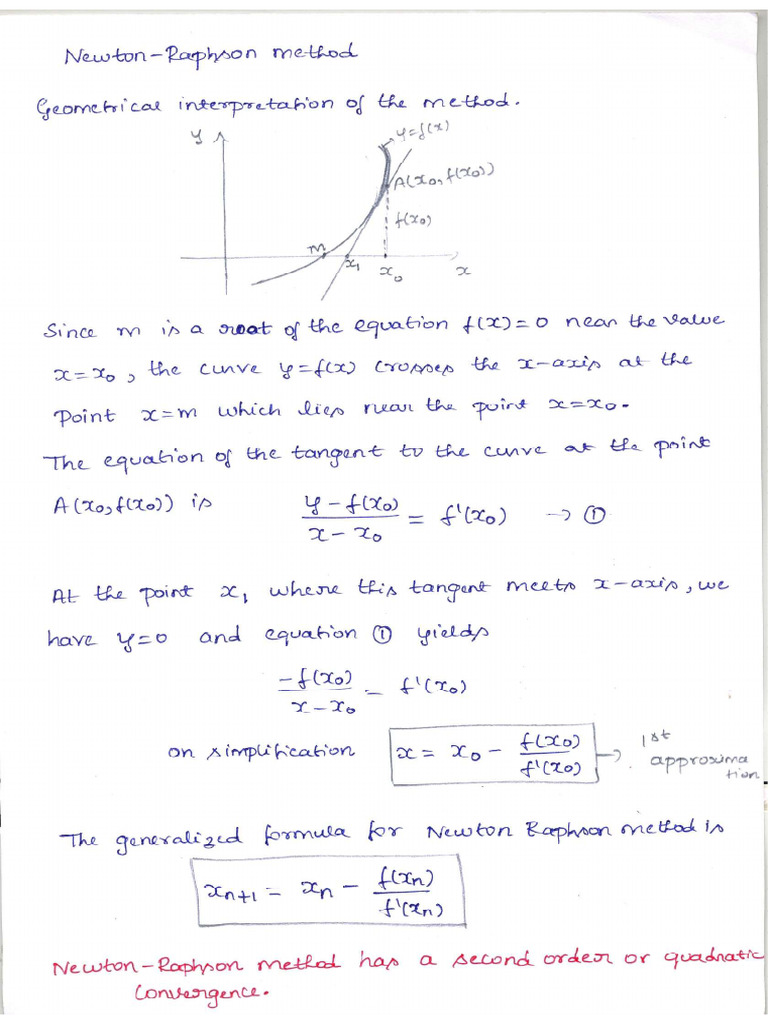 Newton-Raphson method
Geometrical interpretation of the method.
y
y=f(x)
A(x₀, f(x₀))
f(x₀)
m
x₁
x₀
x
Since m is a root of the equation f(x)=0 near the value
x=x₀, the curve y=f(x) crosses the x-axis at the
Point x=m which lies near the point x=x₀.
The equation of the tangent to the curve at the point
A(x₀,f(x₀)) is (y-f(x₀))/(x-x₀) = f'(x₀) → ①
At the point x₁ where this tangent meets x-axis, we
have y=0 and equation ① yields
-f(x₀)/(x-x₀) = f'(x₀)
on simplification x = x₀ - f(x₀)/f'(x₀) → 1st
approxima
tion
The generalized formula for Newton Raphson method is
xₙ₊₁ = xₙ - f(xₙ)/f'(xₙ)
Newton-Raphson method has a second order or quadratic
convergence.